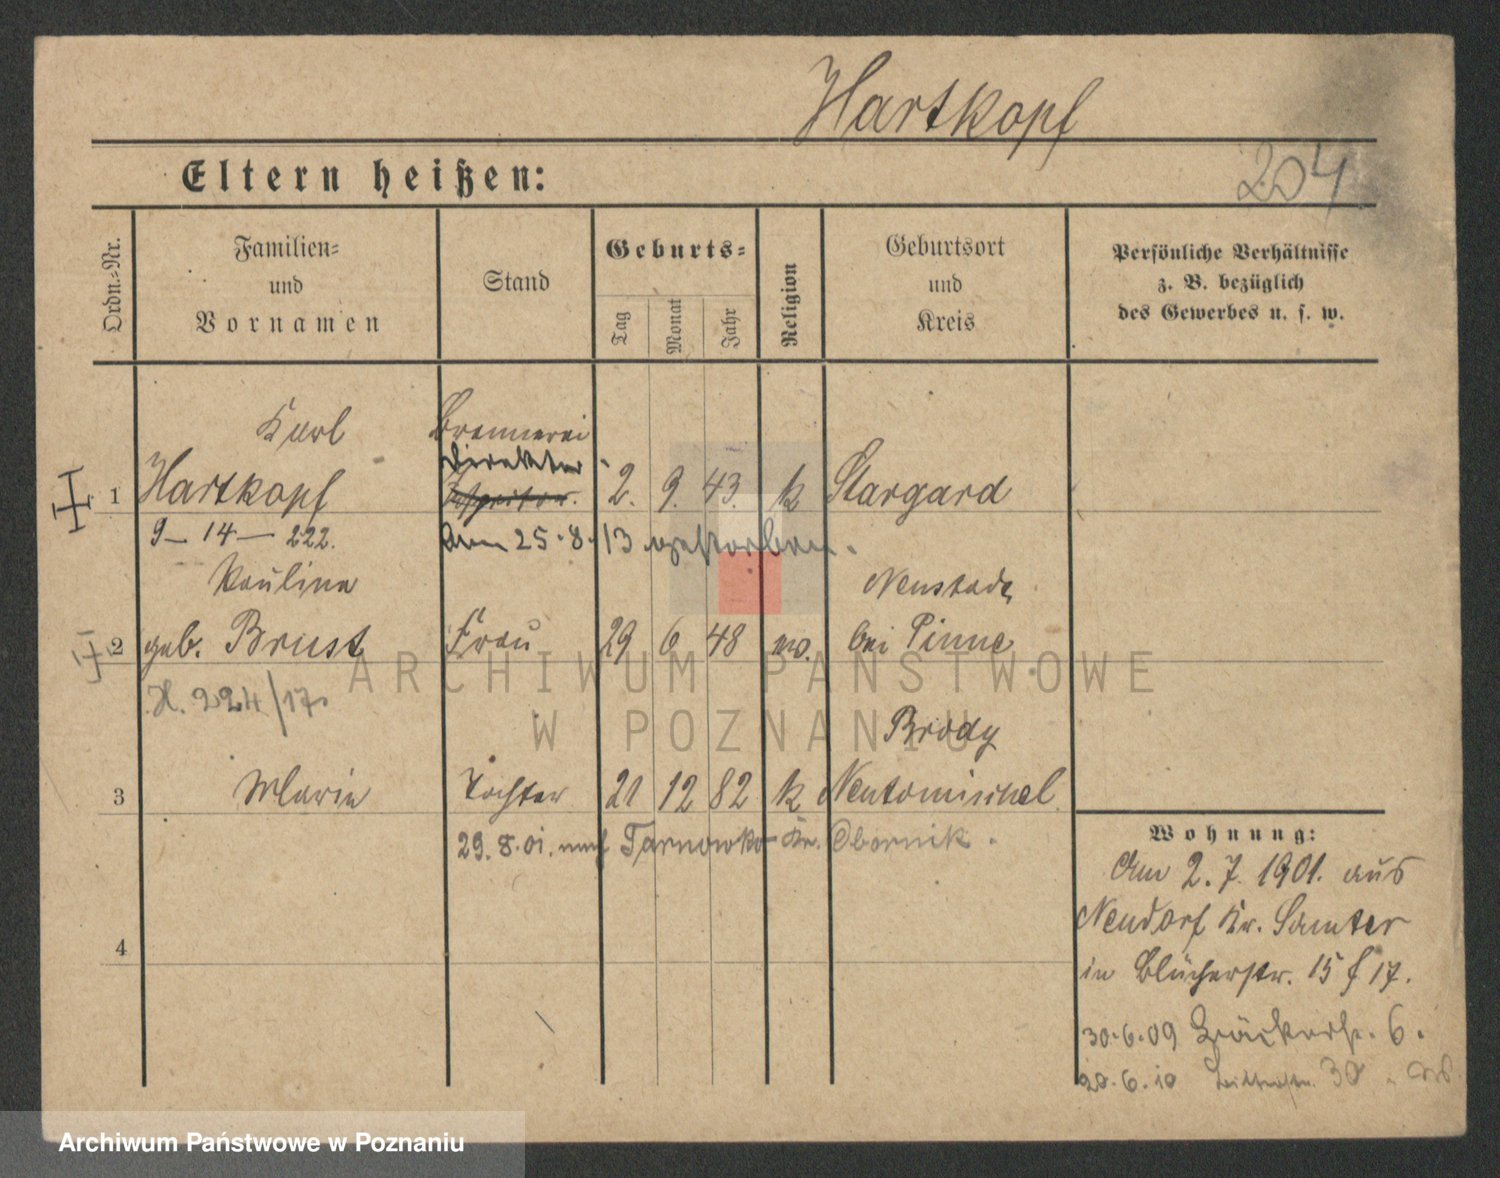 Hartkopf
204
Eltern heißen:
Ordn.-Nr.
Familien-
und
Vornamen
Stand
Geburts-
Tag
Monat
Jahr
Religion
Geburtsort
und
Kreis
Persönliche Verhältnisse
z. B. bezüglich
des Gewerbes u. s. w.
Karl Brennerei
Direktor
1 Hartkopf 2. 9. 43. k Stargard
9- 14- 222. Am 25.8.13 gestorben.
Paulina Neustadt
2 geb. Brust Frau 29 6 48 bei Pinne
ARCHIWUM PAŃSTWOWE
H. 224/17.
W POZNANIU
Brody
3 Maria Tochter 21 12 82 k Neutomischel
29.8.01. nach Tarnowko Kr. Obornik.
4
Wohnung:
Am 2.7.1901. aus
Neudorf Kr. Samter
in Blücherstr. 15 f 17.
30.6.09 6.
20.6.10 30
Archiwum Państwowe w Poznaniu